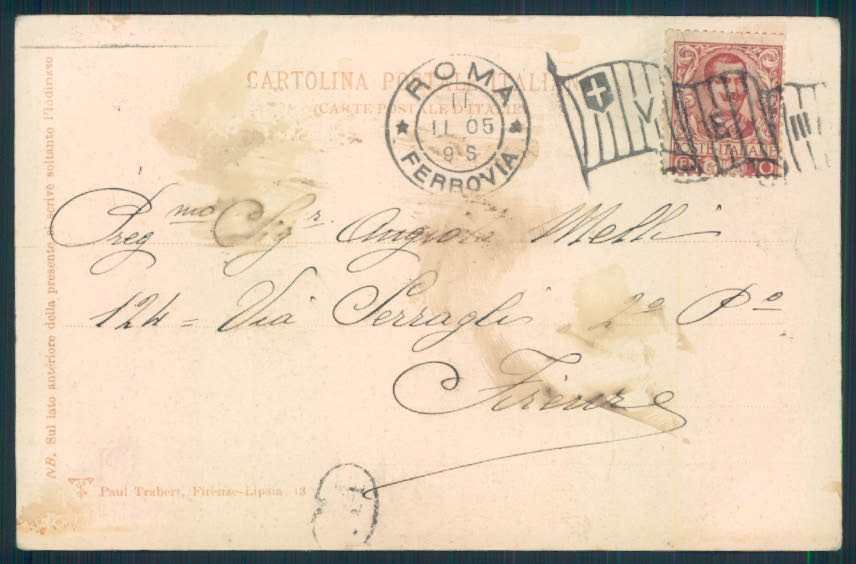 CARTOLINA POSTALE ITALIANA
(CARTE POSTALE D'ITALIE)
ROMA
11
11 05
9 S
FERROVIA
V
E
III
POSTE ITALIANE
Pregmo Sigr Angiolo Melli
124 = Via Serragli 2º Pº
Firenze
NB. Sul lato anteriore della presente si scrive soltanto l'indirizzo
Paul Trabert, Firenze-Lipsia 13